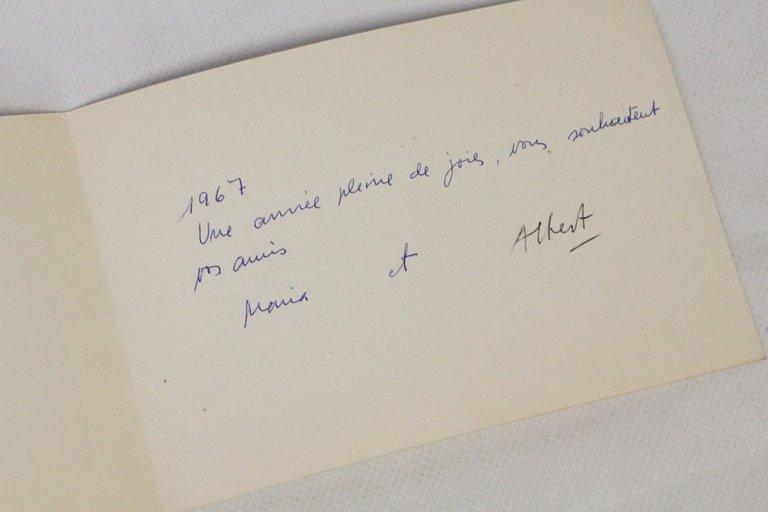 1967
Une année pleine de joies, vous souhaitent
vos amis
Maria et Albert